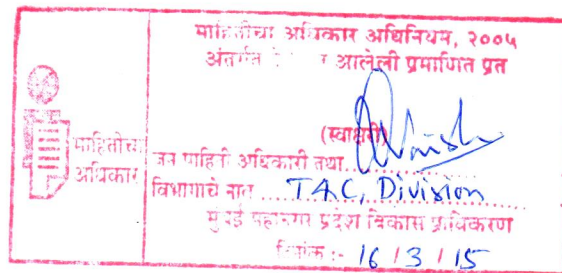 माहितीचा अधिकार अधिनियम, २००५
अंतर्गत आलेली प्रमाणित प्रत
माहितीचा
अधिकार
(स्वाक्षरी)
जन माहिती अधिकारी तथा
विभागाचे नाव T&C, Division
मुंबई महानगर प्रदेश विकास प्राधिकरण
दिनांक :- 16/3/15